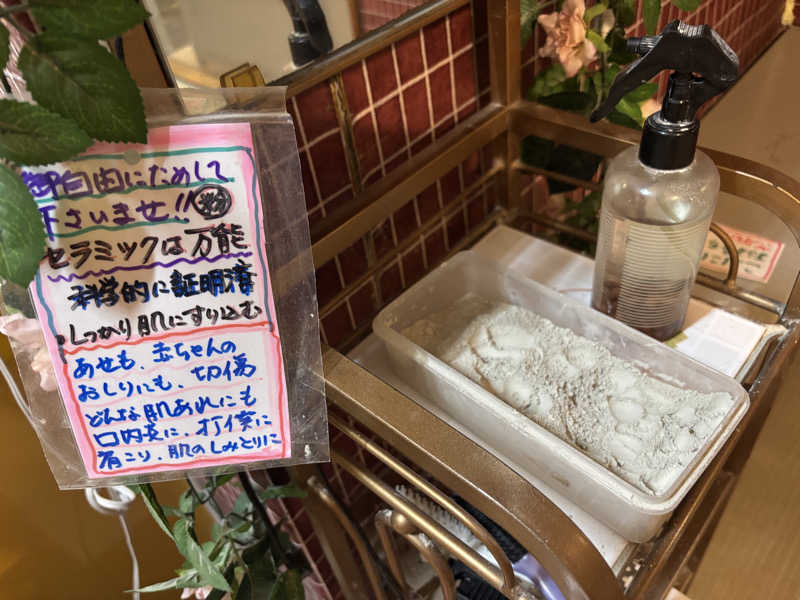 御自由にためして
下さいませ!! 粉
セラミックは万能
科学的に証明済
・しっかり肌にすり込む
あせも、赤ちゃんの
おしりにも、切傷
どんな肌あれにも
口内炎に、打僕に
肩こり、肌のしみとりに